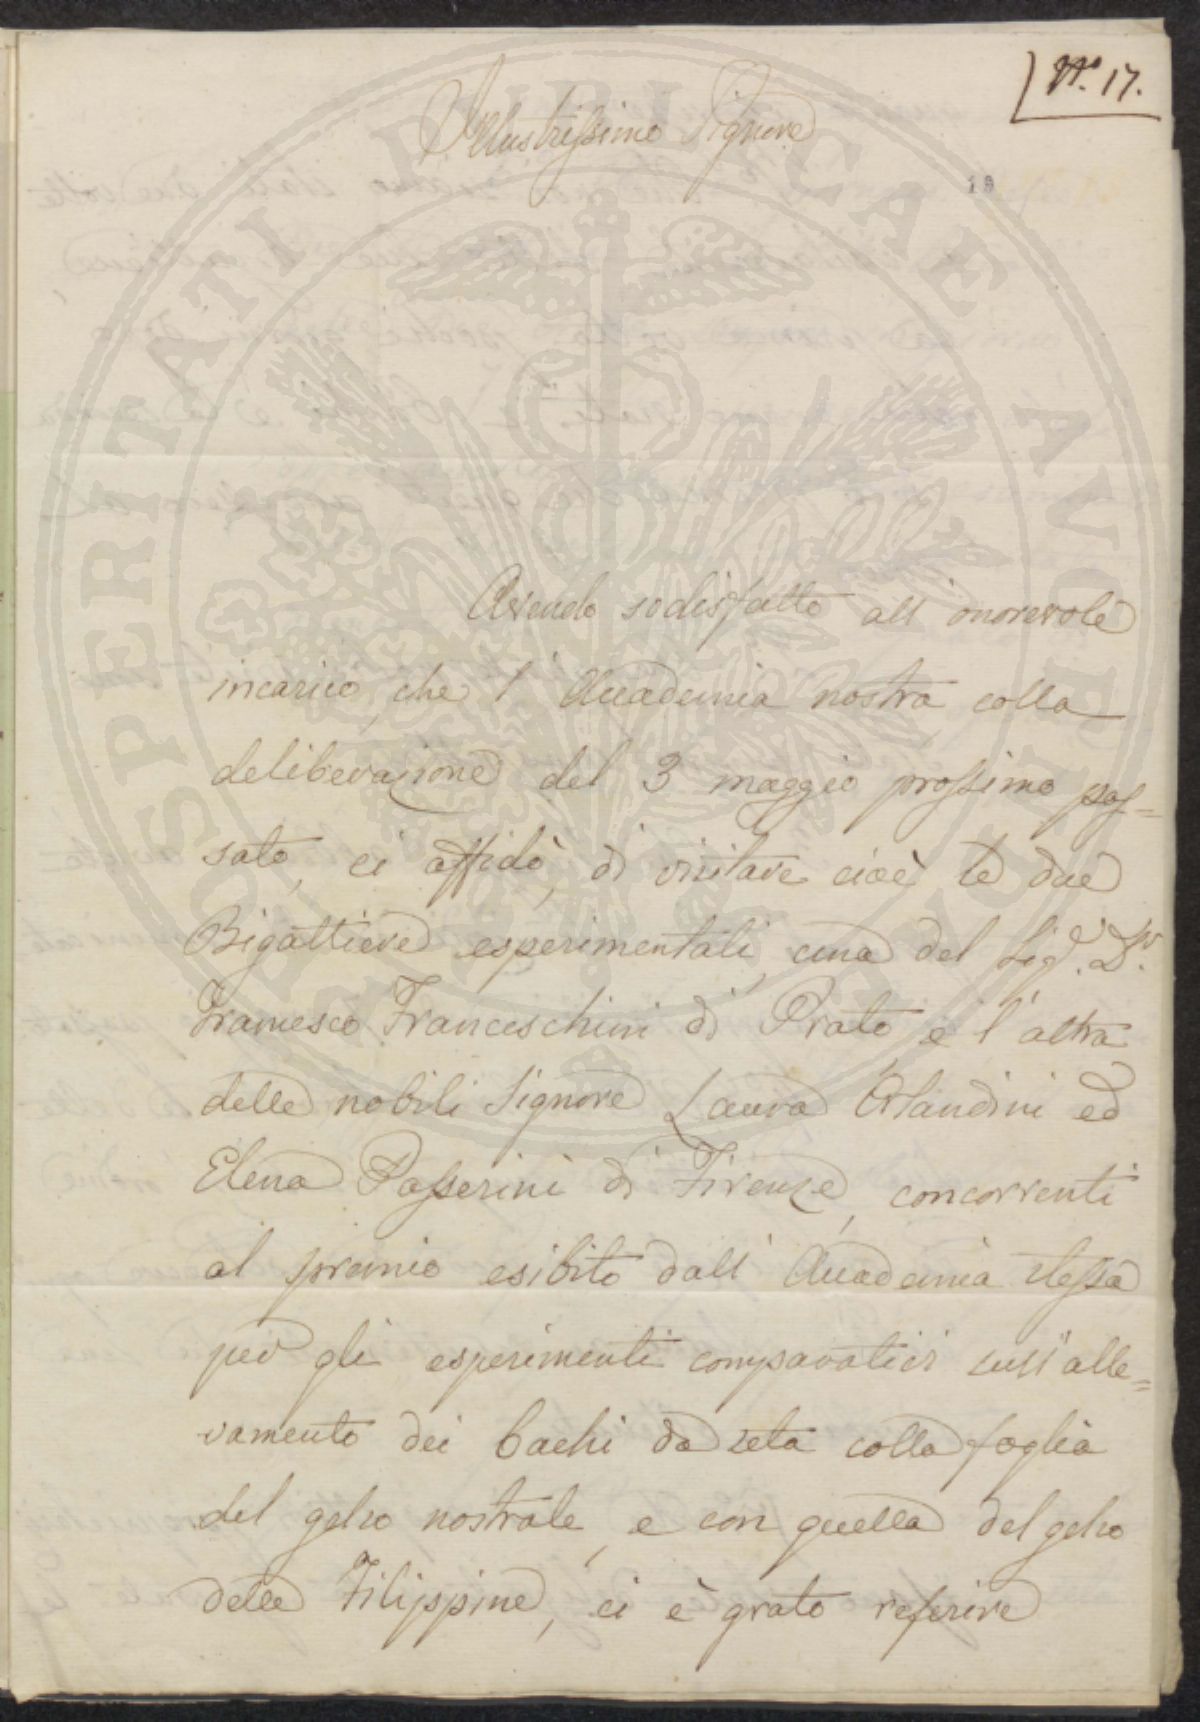 N.° 17.
Illustrissimo Signore
18
Avendo sodisfatto all' onorevole
incarico, che l' Accademia nostra colla
deliberazione del 3 maggio prossimo pas=
sato, ci affidò, di visitare cioè le due
Bigattiere esperimentali, una del Sig.r D.r
Francesco Franceschini di Prato, e l' altra
delle nobili Signore Laura Orlandini ed
Elena Passerini di Firenze, concorrenti
al premio esibito dall' Accademia stessa
per gli esperimenti comparativi sull' alle=
vamento dei bachi da seta colla foglia
del gelso nostrale, e con quella del gelso
delle Filippine, ci è grato referire
PROSPERITATI PUBLICAE AVGENDAE